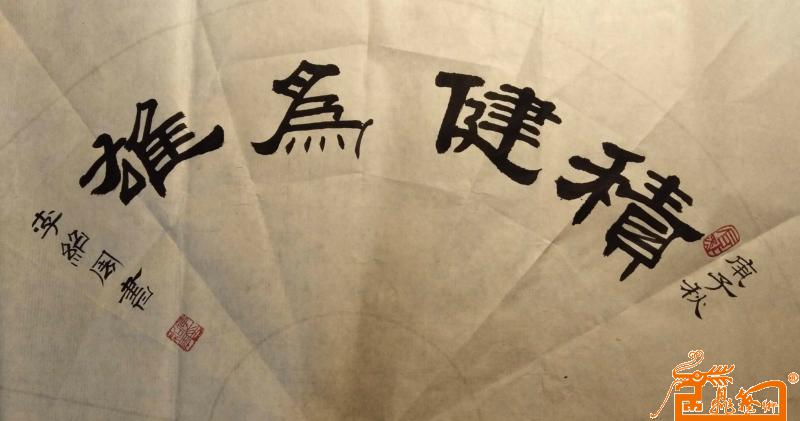 庚子秋
積健為雄
李紹 書